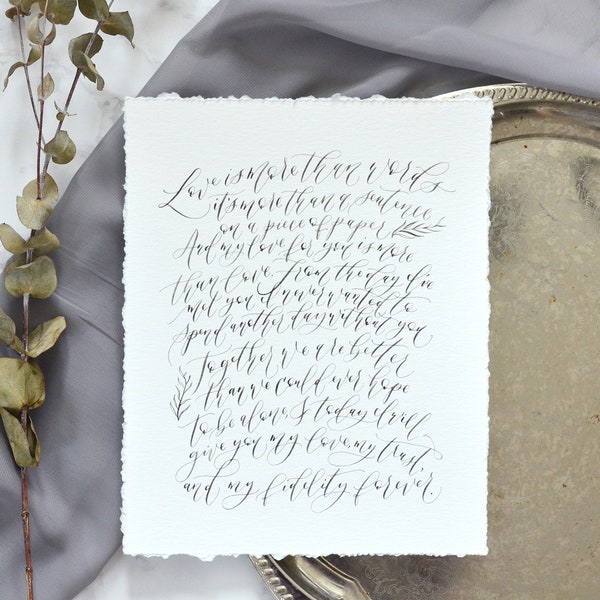 Love is more than words
it's more than a sentence
on a piece of paper
And my love for you is more
than love. From the day I've
met you I never wanted to
spend another day without you
Together we are better
than we could ever hope
to be alone & today I will
give you my love, my trust,
and my fidelity forever.